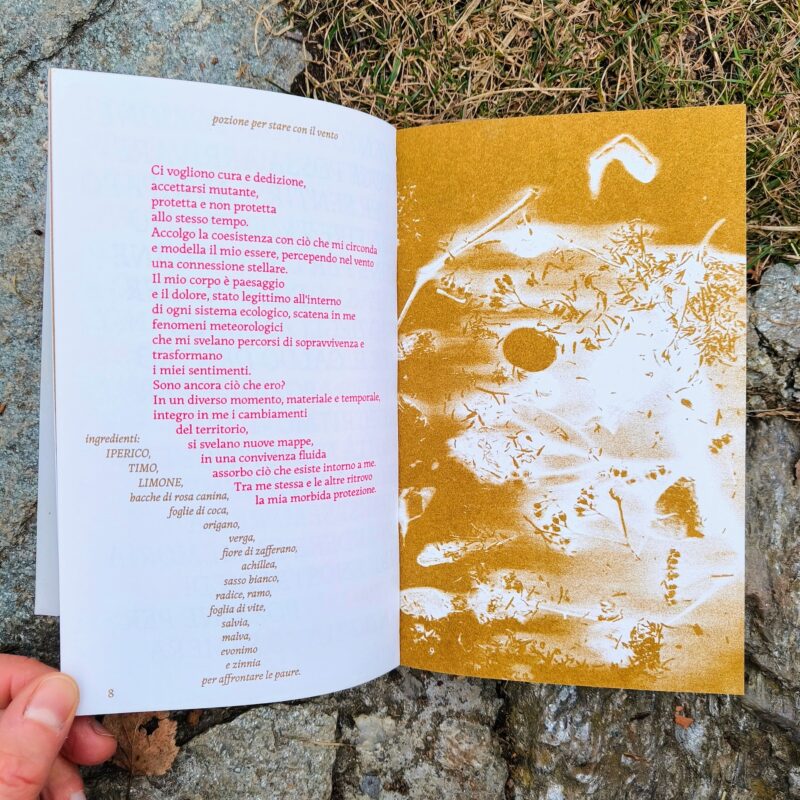 pozione per stare con il vento
Ci vogliono cura e dedizione,
accettarsi mutante,
protetta e non protetta
allo stesso tempo.
Accolgo la coesistenza con ciò che mi circonda
e modella il mio essere, percependo nel vento
una connessione stellare.
Il mio corpo è paesaggio
e il dolore, stato legittimo all'interno
di ogni sistema ecologico, scatena in me
fenomeni meteorologici
che mi svelano percorsi di sopravvivenza e
trasformano
i miei sentimenti.
Sono ancora ciò che ero?
In un diverso momento, materiale e temporale,
integro in me i cambiamenti
del territorio,
si svelano nuove mappe,
in una convivenza fluida
assorbo ciò che esiste intorno a me.
Tra me stessa e le altre ritrovo
la mia morbida protezione.
ingredienti:
IPERICO,
TIMO,
LIMONE,
bacche di rosa canina,
foglie di coca,
origano,
verga,
fiore di zafferano,
achillea,
sasso bianco,
radice, ramo,
foglia di vite,
salvia,
malva,
evonimo
e zinnia
per affrontare le paure.
8